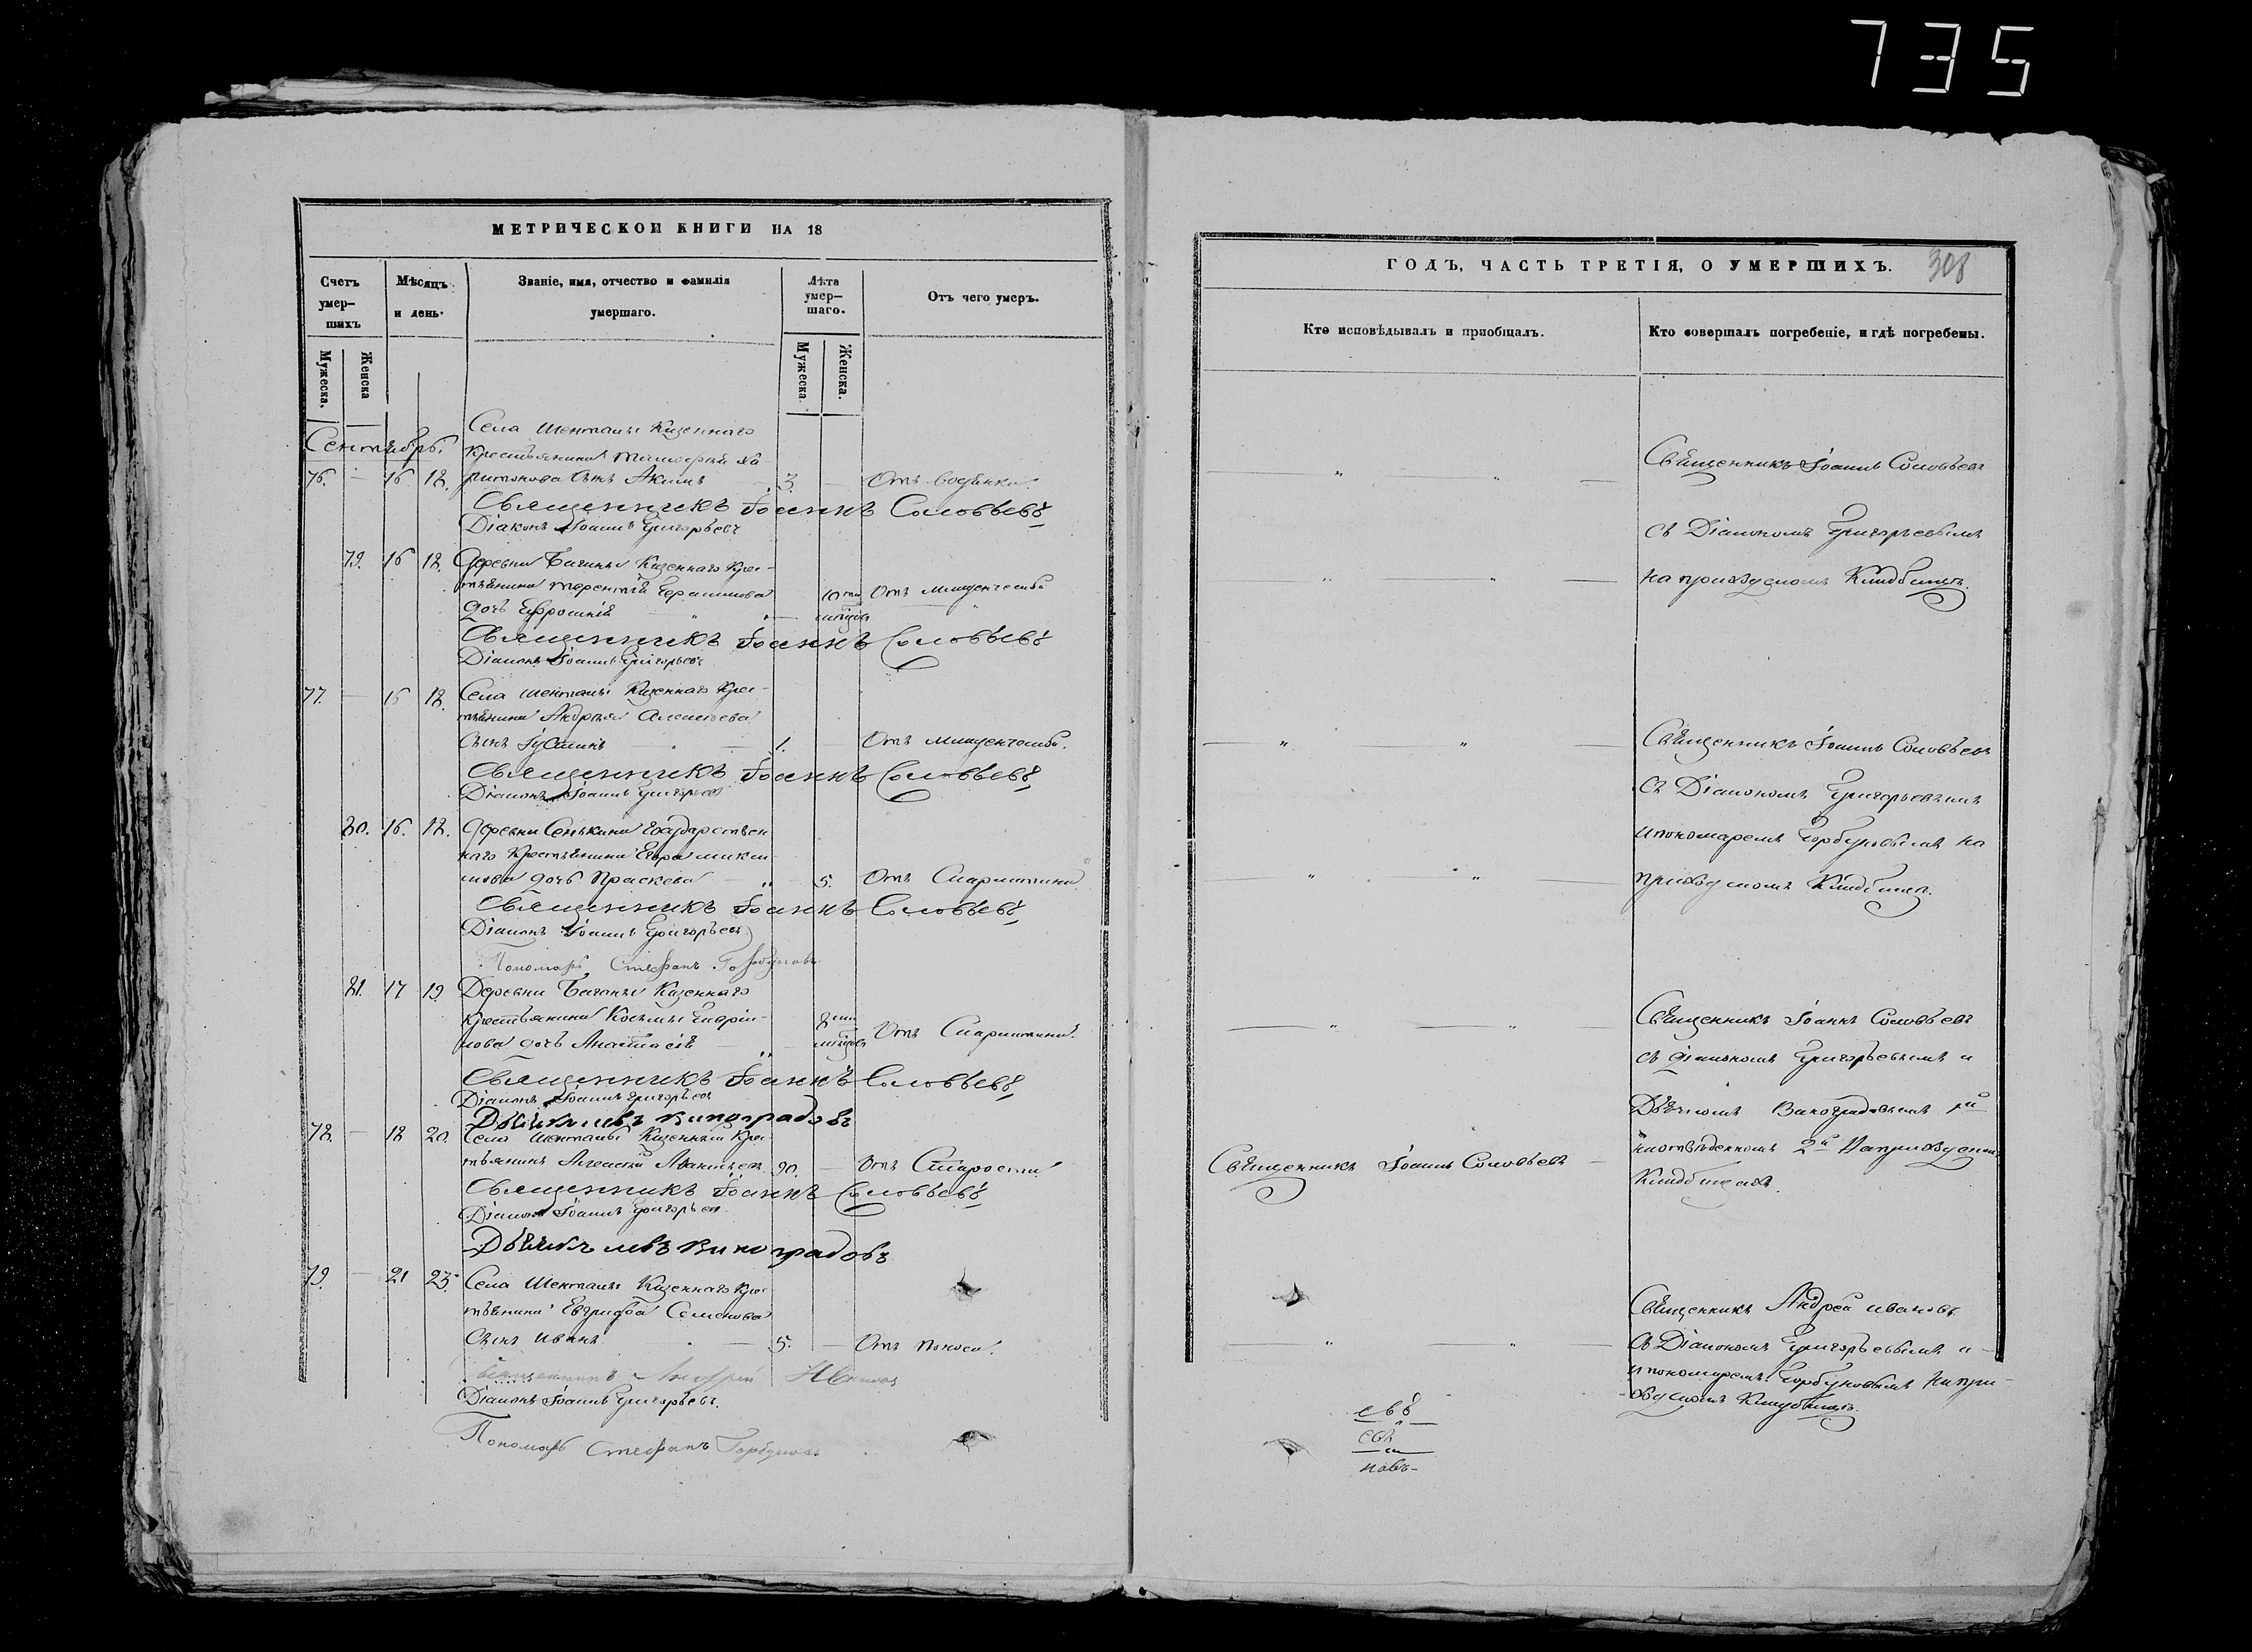 735
МЕТРИЧЕСКОЙ КНИГИ НА 18
Счетъ умер-шихъ
Мѣсяцъ и день.
Званіе, имя, отчество и фамилія умершаго.
Лѣта умер-шаго.
Отъ чего умеръ.
Мужеска.
Женска
Мужеска.
Женска.
Сентябрь.
Села Шенталы Казеннаго
Крестьянина Тимофея Ха
76. — 16 18. ритонова сынъ Акимъ 3. — Отъ водянки.
Священникъ Іоаннъ Соловьевъ
Діаконъ Іоаннъ Григорьевъ
79. 16 18. Деревни Баганы Казеннаго Крес-
тьянина Терентія Герасимова 10ти Отъ младенчества
дочь Ефросинія
Священникъ Іоаннъ Соловьевъ
Діаконъ Іоаннъ Григорьевъ
77. — 16 18. Села Шенталы Казеннаго Крес-
тьянина Андрея Алексѣева
Сынъ Іустинъ 1. — Отъ младенчества.
Священникъ Іоаннъ Соловьевъ
Діаконъ Іоаннъ Григорьевъ
80. 16. 18. Деревни Сенькина Государствен
наго Крестьянина Егора
дочь Праскева „ 5. Отъ Скарлатины
Священникъ Іоаннъ Соловьевъ
Діаконъ Іоаннъ Григорьевъ
Пономарь Стефанъ Горбуновъ
81. 17 19. Деревни Баганы Казеннаго
Крестьянина Космы Гаврі-
лова дочь Анастасія „ Отъ Скарлатины.
Священникъ Іоаннъ Соловьевъ
Діаконъ Іоаннъ Григорьевъ
Дьячекъ левъ Виноградовъ
78. — 18 20. Села Шенталы Казенный Крес-
тьянинъ Алексѣй 90. — Отъ Старости.
Священникъ Іоаннъ Соловьевъ
Діаконъ Іоаннъ Григорьевъ
Дьячекъ левъ Виноградовъ
79. — 21 23. Села Шенталы Казеннаго Крес
тьянина Евграфа Семенова
Сынъ Иванъ 5. — Отъ поноса.
Священникъ Андрей Ивановъ
Діаконъ Іоаннъ Григорьевъ.
Пономарь Стефанъ Горбуновъ
ГОДЪ, ЧАСТЬ ТРЕТІЯ, О УМЕРШИХЪ. 308
Кто исповѣдывалъ и пріобщалъ.
Кто совершалъ погребеніе, и гдѣ погребены.
Священникъ Іоаннъ Соловьевъ
съ Діакономъ Григорьевымъ
на приходскомъ Кладбищѣ.
Священникъ Іоаннъ Соловьевъ
съ Діакономъ Григорьевымъ
и пономаремъ Горбуновымъ на
приходскомъ Кладбищѣ.
Священникъ Іоаннъ Соловьевъ
съ діакономъ Григорьевымъ и
Дьячкомъ Виноградовымъ
на отведенномъ 2й На приходском
Священникъ Іоаннъ Соловьевъ
Кладбищахъ.
Священникъ Андрей Ивановъ
съ Діакономъ Григорьевымъ и
и пономаремъ Горбуновымъ на при-
ходскомъ Кладбищѣ.
евъ
евъ
новъ